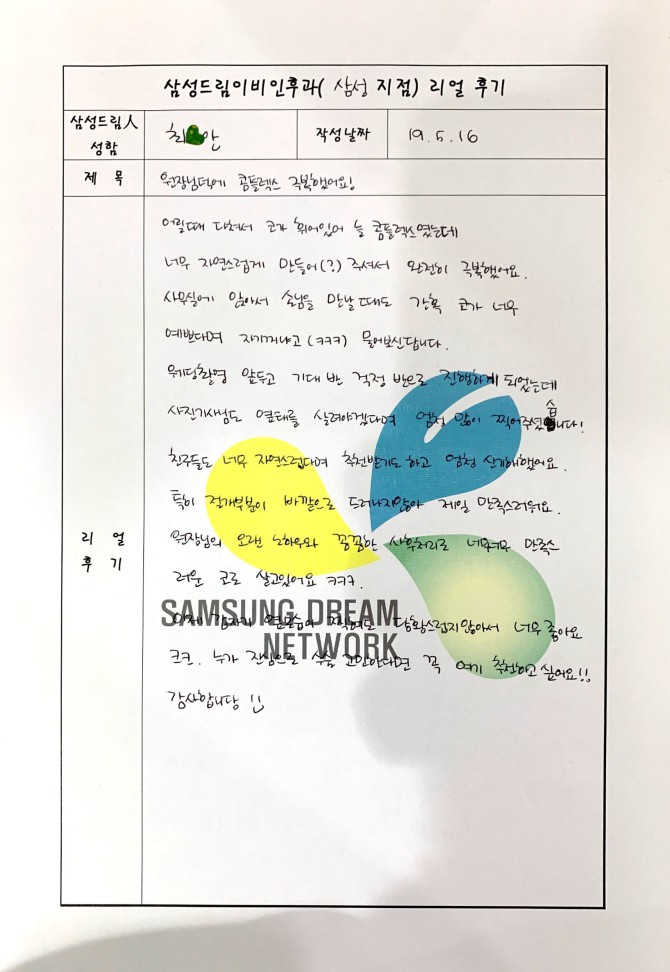 삼성드림이비인후과( 삼성 지점) 리얼 후기
삼성드림人 성함
최 안
작성날짜
19. 5. 16
제 목
원장님덕에 콤플렉스 극복했어요!
어릴때 다쳐서 코가 휘어있어 늘 콤플렉스였는데
너무 자연스럽게 만들어(?) 주셔서 완전히 극복했어요.
사무실에 앉아서 손님을 만날때도 간혹 코가 너무
예쁘다며 자기거냐고 (ㅋㅋㅋ) 물어보신답니다.
웨딩촬영 앞두고 기대 반 걱정 반으로 진행하게 되었는데
사진기사님도 옆태를 살려야겠다며 엄청 많이 찍어주셨습니다!
친구들도 너무 자연스럽다며 추천받기도 하고 엄청 신기해했어요.
특히 절개부분이 바깥으로 드러나지않아 제일 만족스러워요.
리 얼
후 기
원장님의 오랜 노하우와 꼼꼼한 사후처리로 너무너무 만족스
러운 코로 살고있어요 ㅋㅋㅋ.
이제 갑자기 옆모습이 찍혀도 당황스럽지않아서 너무 좋아요
ㅋㅋ. 누가 진심으로 수술 고민한다면 꼭 여기 추천하고싶어요!!
감사합니당 :)
SAMSUNG DREAM
NETWORK